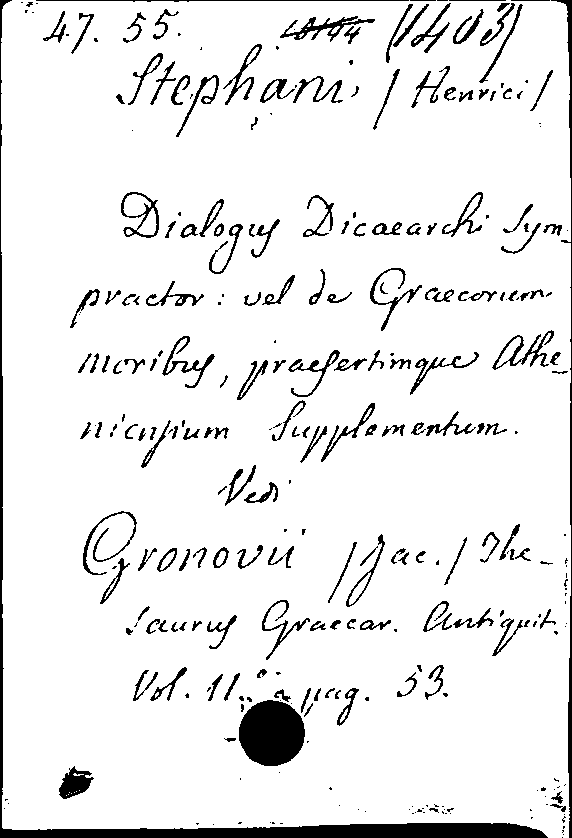 47. 55. (1403)
Stephani, / Henrici /
Dialogus Dicaearchi Sym-
practor: vel de Graecorum
moribus, praesertimque Athe-
niensium Supplementum.
Vedi
Gronovii / Jac. / The-
saurus Graecar. Antiquit.
Vol. 11.º a pag. 53.